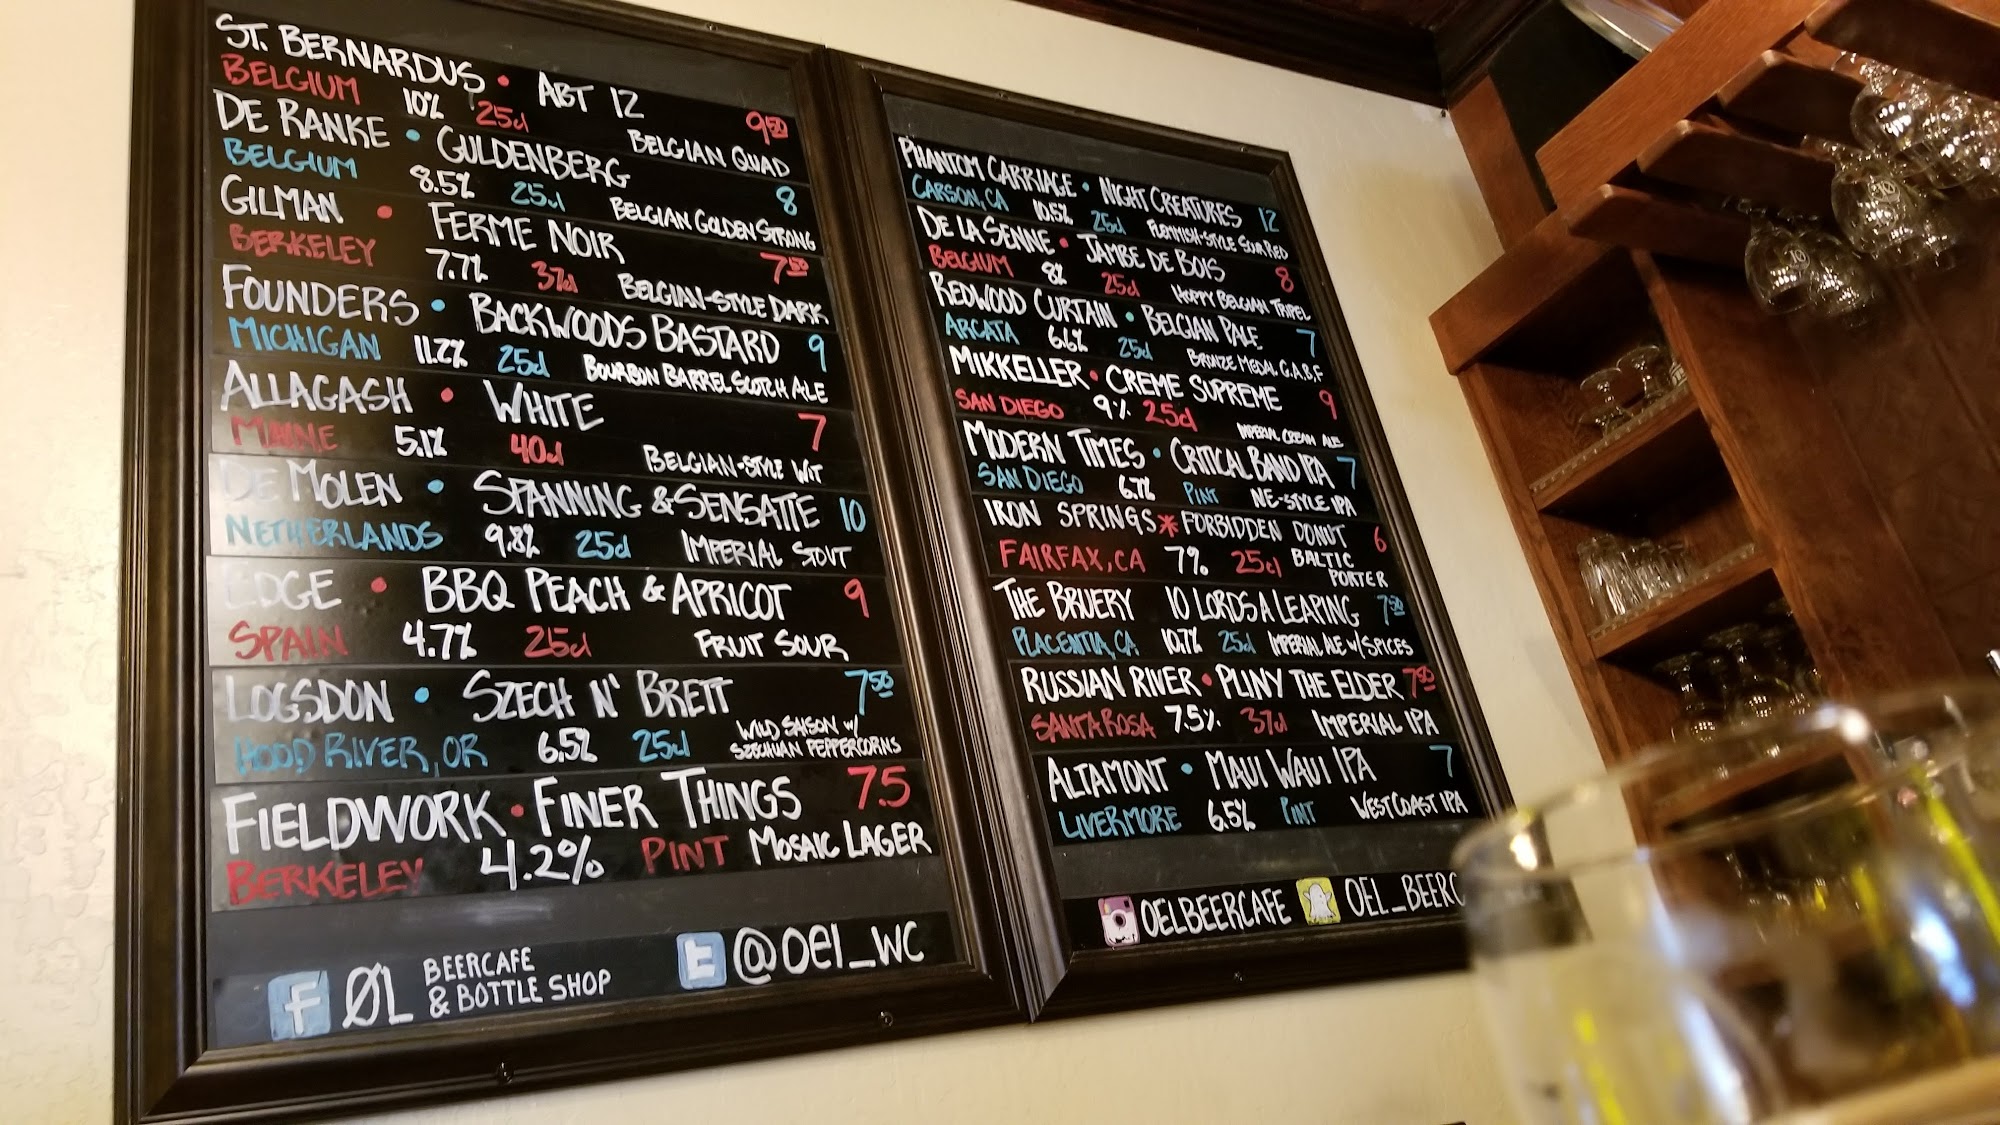 ST. BERNARDUS • ABT 12 9.50
BELGIUM 10% 25cl BELGIAN QUAD
DE RANKE • GULDENBERG 8
BELGIUM 8.5% 25cl BELGIAN GOLDEN STRONG
GILMAN • FERME NOIR 7.50
BERKELEY 7.7% 37cl BELGIAN-STYLE DARK
FOUNDERS • BACKWOODS BASTARD 9
MICHIGAN 11.2% 25cl BOURBON BARREL SCOTCH ALE
ALLAGASH • WHITE 7
MAINE 5.1% 40cl BELGIAN-STYLE WIT
DE MOLEN • SPANNING & SENSATIE 10
NETHERLANDS 9.8% 25cl IMPERIAL STOUT
EDGE • BBQ PEACH & APRICOT 9
SPAIN 4.7% 25cl FRUIT SOUR
LOGSDON • SZECH N' BRETT 7.50
HOOD RIVER, OR 6.5% 25cl WILD SAISON W/
SZECHUAN PEPPERCORNS
FIELDWORK • FINER THINGS 7.5
BERKELEY 4.2% PINT MOSAIC LAGER
f ØL BEERCAFE
& BOTTLE SHOP
t @OEL_WC
PHANTOM CARRIAGE • NIGHT CREATURES 12
CARSON, CA 10.5% 25cl FLEMMISH-STYLE SOUR RED
DE LA SENNE • JAMBE DE BOIS 8
BELGIUM 8% 25cl HOPPY BELGIAN TRIPEL
REDWOOD CURTAIN • BELGIAN PALE 7
ARCATA 6.6% 25cl BRONZE MEDAL G.A.B.F
MIKKELLER • CREME SUPREME 9
SAN DIEGO 9% 25cl IMPERIAL CREAM ALE
MODERN TIMES • CRITICAL BAND IPA 7
SAN DIEGO 6.7% PINT NE-STYLE IPA
IRON SPRINGS * FORBIDDEN DONUT 6
FAIRFAX, CA 7% 25cl BALTIC
PORTER
THE BRUERY 10 LORDS A LEAPING 7.50
PLACENTIA, CA 10.7% 25cl IMPERIAL ALE W/ SPICES
RUSSIAN RIVER • PLINY THE ELDER 7.50
SANTA ROSA 7.5% 37cl IMPERIAL IPA
ALTAMONT • MAUI WAUI IPA 7
LIVERMORE 6.5% PINT WEST COAST IPA
OELBEERCAFE OEL_BEERC